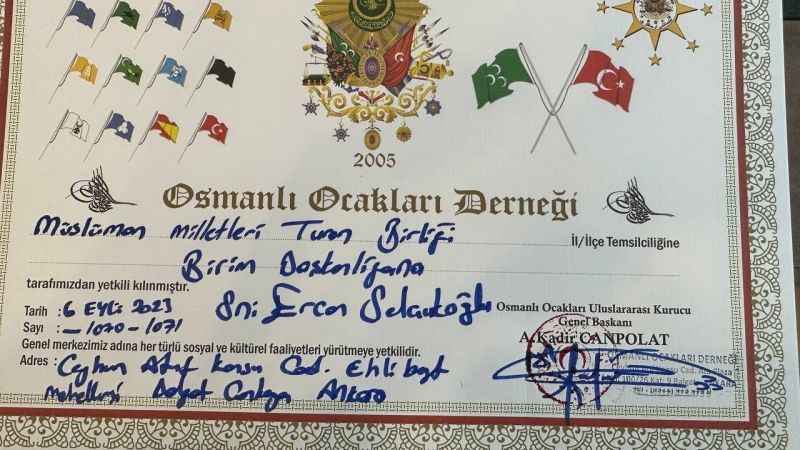 2005
Osmanlı Ocakları Derneği
Müslüman Milletleri Turan Birliği İl/İlçe Temsilciliğine
Birim Başkanlığına
tarafımızdan yetkili kılınmıştır.
Tarih : 6 Eylül 2023 Sn: Ercan Selçukoğlu
Sayı : -1070-1071
Osmanlı Ocakları Uluslararası Kurucu
Genel Başkanı
A.Kadir CANPOLAT
Genel merkezimiz adına her türlü sosyal ve kültürel faaliyetleri yürütmeye yetkilidir.
Adres : Ceyhun Atuf Kansu Cad. Ehlibeyt
Mahallesi Çankaya Ankara
OSMANLI OCAKLARI DERNEĞİ